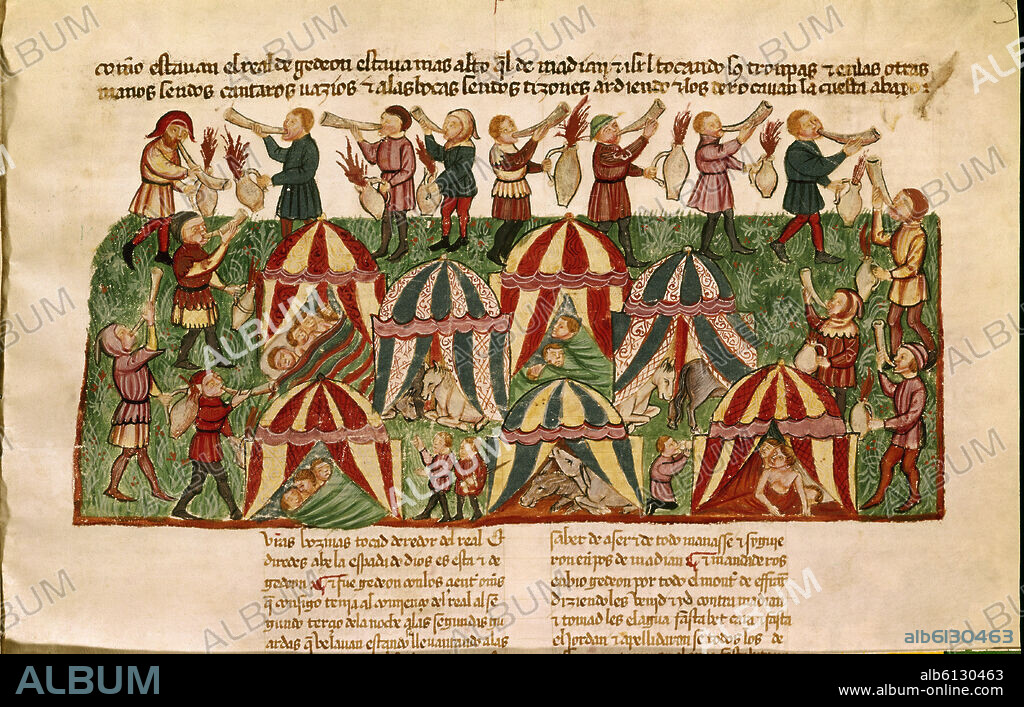 como estavan el real de gedeon estava mas alto q̃l de madian & isrl tocando sꝯ trompas & enlas otras
manos sendos cantaros vazios & alas bocas sentos tizones ardiendo & los derocavan la cuesta abaxo
vr̃as bozinas tocad deredor del real Et
diredes abe la espada de dios es esta & de
gedeon & fue gedeon conlos çient om̃s
q̃ consigo tenja al comienço del real al se
gundo terçio dela noche
ardas q̃ belavan estando levantando alas
sabet de aser & de todo manasse & syguie
ron en pos de madian & mandaderos
enbio gedeon por todo el mont̃ de
diziendoles benid & yd contra madian
& tomad les el agua fasta bet
el Jordan & apellidaron se todos los de
alb6130463
ALBUM
alb6130463
www.album-online.com